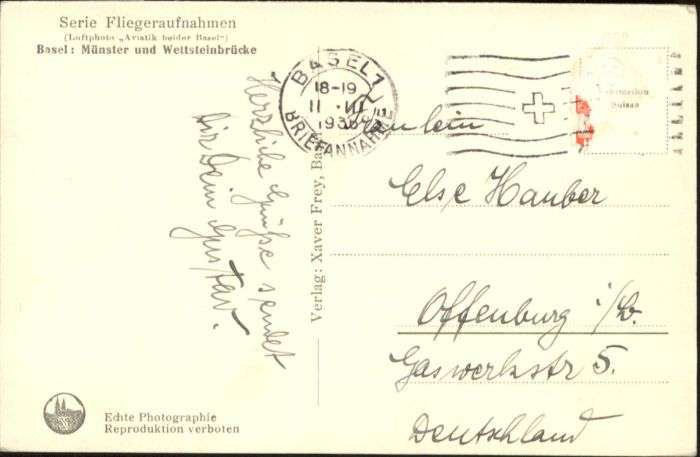 Serie Fliegeraufnahmen
(Luftphoto „Aviatik beider Basel")
Basel: Münster und Wettsteinbrücke
Herzliche Grüße sendet
Dir Dein Gustav.
Verlag: Xaver Frey, Bas
BASEL 1
18-19
11. III.
193
BRIEFANNAHME
Fräulein
Else Hauber
Offenburg i/B.
Gaswerkstr 5.
Deutschland
Suisse
Echte Photographie
Reproduktion verboten